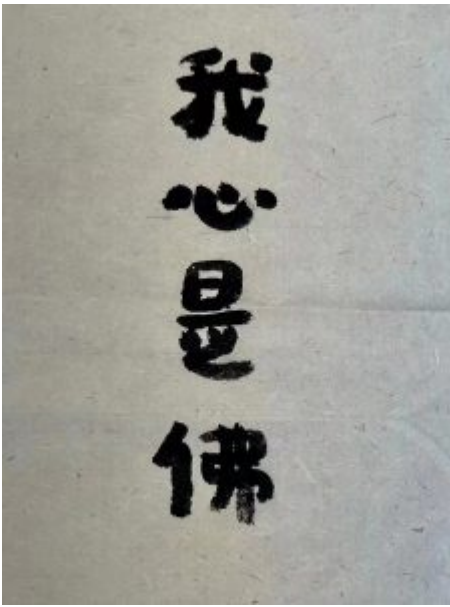 我心是佛